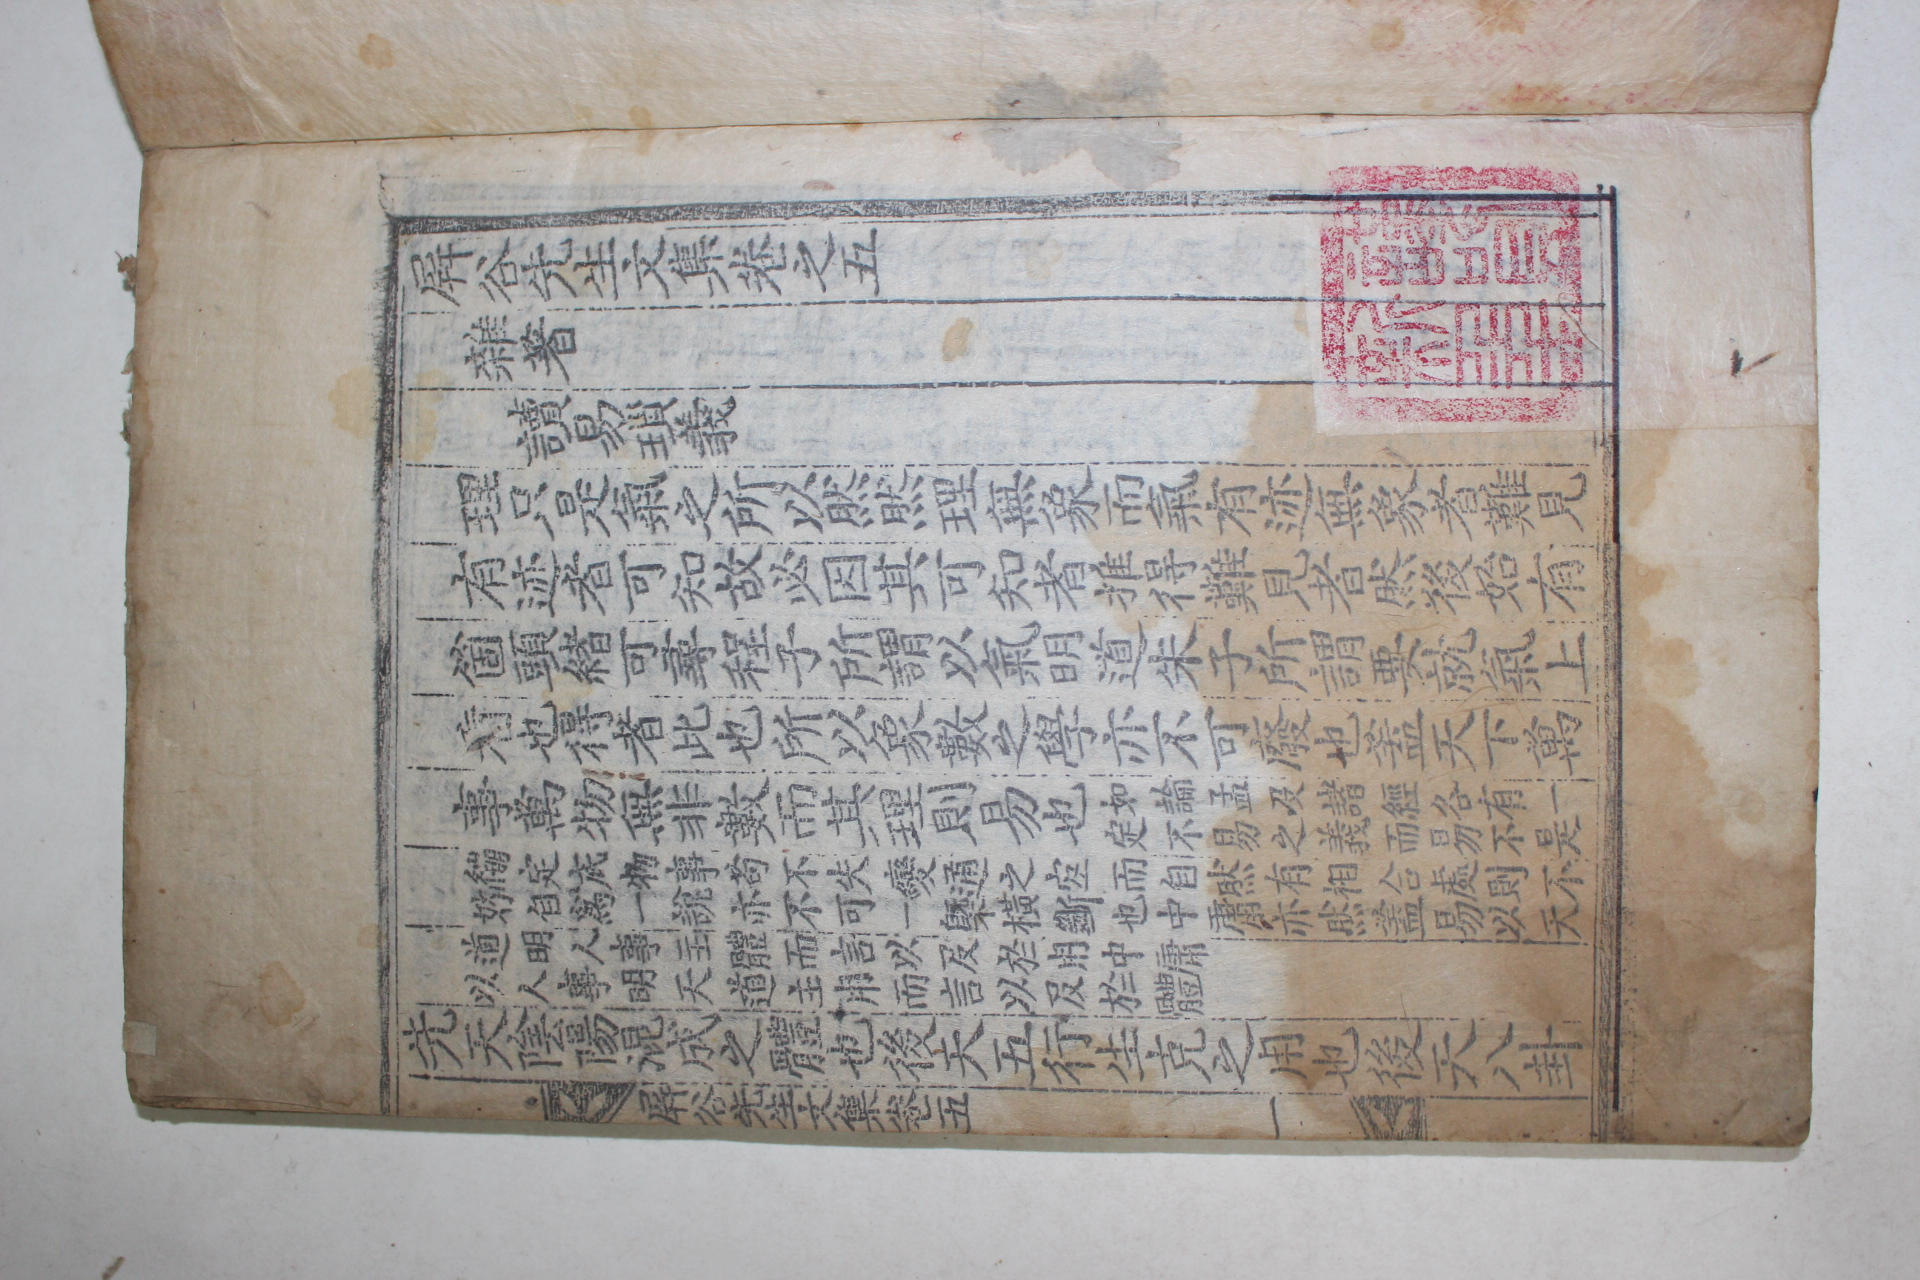 屛谷先生文集卷之五
雜著
讀易瑣義
理只是氣之所以然然理無象而氣有迹無象者難見
有迹者可知故必因其可知者推得難見者然後始有
箇頭緖可尋程子所謂以氣明道朱子所謂要就氣上
看也得者此也所以象數之學亦不可廢也盖天下萬
事萬物無非數而其理則易也如論孟及諸經各有一
定不易之義而易不是
繃定底物事苟不失變通之宜而自然有相合處則不
妨自爲一說亦不可一槩橫斷也中庸亦然盖易以天
道明人事主體而言以及於用中庸
以人事明天道主用而言以及於體
先天陰陽混成之體也後天五行生克之用也後天八卦
屛谷先生文集卷五
一